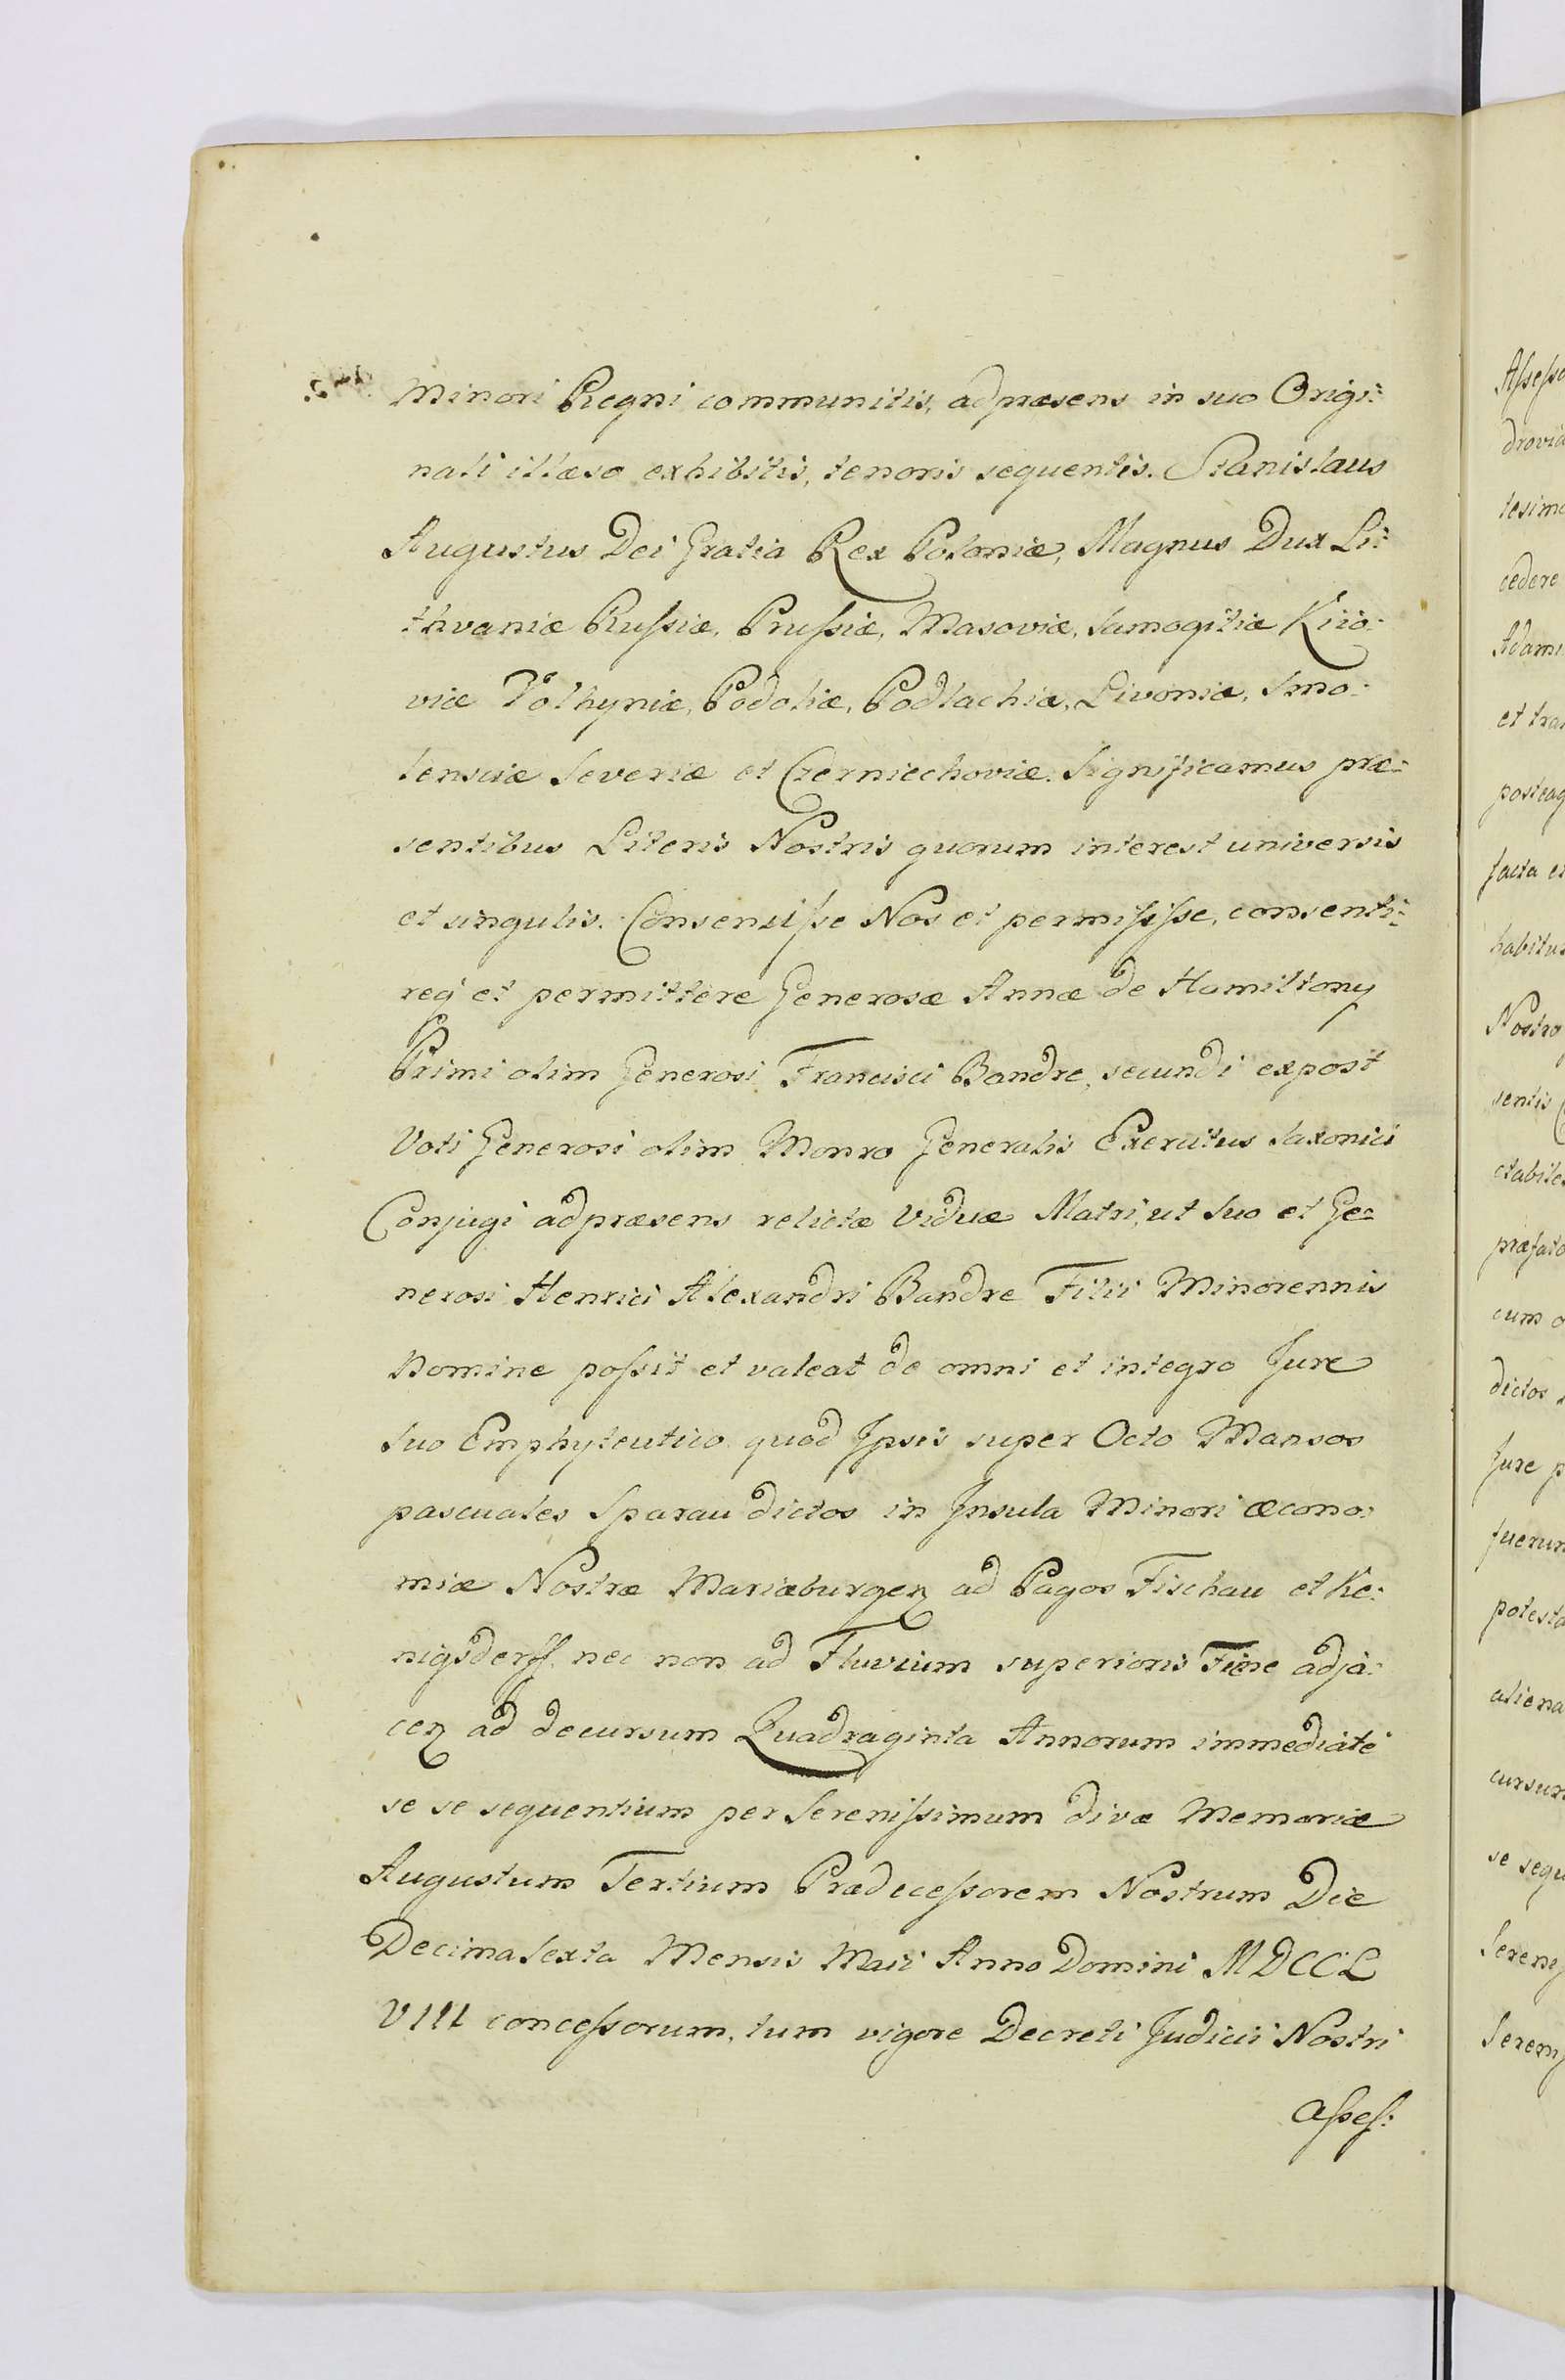 Minori Regni communitis, adpræsens in suo Origi:
nali illæso exhibitis, tenoris sequentis. Stanislaus
Augustus Dei Gratia Rex Poloniæ, Magnus Dux Li:
thvaniæ Russiæ, Prussiæ, Masoviæ, Samogitiæ Kiio:
viæ Volhyniæ, Podoliæ, Podlachiæ, Livoniæ, Smo:
lensciæ Severiæ et Czerniechoviæ. Significamus præ:
sentibus Literis Nostris quorum interest universis
et singulis. Consensisse Nos et permisisse, consenti:
req et permittere Generosæ Annæ de Hamiltony
Primi olim Generosi Francisci Bandre, secundi expost
Voti Generosi olim Monro Generalis Exercitus Saxonici
Conjugi adpræsens relictæ Viduæ Matri, ut Suo et Ge:
nerosi Henrici Alexandri Bandre Filii Minorennis
Nomine possit et valeat de omni et integro Jure
Suo Emphyteutico quod Ipsis super Octo Mansos
pascuales Sparau dictos in Insula Minori œcono:
miæ Nostræ Mariæburgen ad Pagos Fischau et Ke:
nigsderff, nec non ad Fluvium superioris Fiene adja:
cen ad decursum Quadraginta Annorum immediatè
se se sequentium per Serenissimum divæ Memoriæ
Augustum Tertium Prædecessorem Nostrum Die
Decima Sexta Mensis Maii Anno Domini MDCCL
VIII concessorum, tum vigore Decreti Judicii Nostri
Asses:
Assesso
drovia
tesimo
cedere
Adami
et tran
posteaq
facta et
habitus
Nostro
sentis
ctabiles
præfato
cum o
dictos
Jure p
fuerun
potesta
aliena
cursum
se sequ